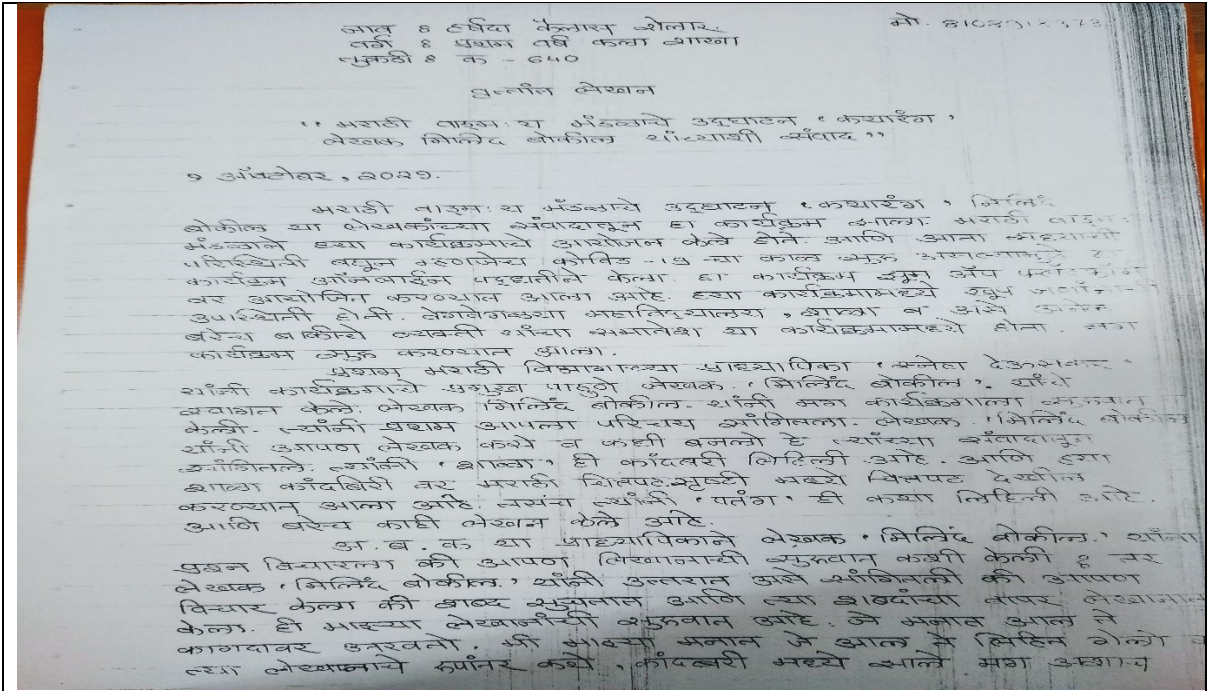 नाव : हर्षदा कैलास शेलार. मो.
वर्ग : प्रथम वर्ष कला शाखा
तुकडी : क - ६४०
वृत्तांत लेखन
" मराठी वाङ्मःय मंडळाचे उद्घाटन ' कथारंग '
लेखक मिलिंद बोकील यांच्याशी संवाद "
१ ऑक्टोबर, २०२१.
मराठी वाङ्मःय मंडळाचे उद्घाटन ' कथारंग ' मिलिंद
बोकील या लेखकांच्या संवादातून हा कार्यक्रम झाला. मराठी
मंडळाने ह्या कार्यक्रमाचे आयोजन केले होते. आणि आता सध्याची
परिस्थिती बघून म्हणजेच कोविड - १९ चा काळ सुरू असल्यामुळे
कार्यक्रम ऑनलाईन पद्धतीने केला. हा कार्यक्रम झूम ॲप
वर आयोजित करण्यात आला आहे. ह्या कार्यक्रमामध्ये खूप
उपस्थिती होती. वेगवेगळ्या महाविद्यालय, शाळा व असे अनेक
बरेच बाकीचे व्यक्ती यांचा समावेश या कार्यक्रमामध्ये होता. मग
कार्यक्रम सुरू करण्यात आला.
प्रथम मराठी विभागाच्या प्राध्यापिका ' स्नेहा देऊसकर '
यांनी कार्यक्रमाचे प्रमुख पाहुणे लेखक. ' मिलिंद बोकील '. यांचे
स्वागत केले. लेखक मिलिंद बोकील. यांनी मग कार्यक्रमाला सुरुवात
केली. त्यांनी प्रथम आपला परिचय सांगितला. लेखक. ' मिलिंद बोकील
यांनी आपण लेखक कसे व कधी बनलो हे त्यांच्या संवादातून
सांगितले. त्यांनी ' शाळा ' ही कादंबरी लिहिली आहे. आणि ह्या
शाळा कांदबिरी वर मराठी चित्रपट सृष्टी मध्ये चित्रपट देखील
करण्यात आला आहे. तसंच त्यांनी ' पतंग ' ही कथा लिहिली आहे.
आणि बरेच काही लेखन केले आहे.
अ. ब. क या प्राध्यापिकाने लेखक ' मिलिंद बोकील. ' यांना
प्रश्न विचारला की आपण लिखानाची सुरुवात कशी केली ? तर
लेखक ' मिलिंद बोकील. ' यांनी उत्तरात असे सांगितली की आपण
विचार केला की शब्द सुचतात आणि त्या शब्दांचा वापर लेखानात
केला. ही माझ्या लेखानाची सुरुवात आहे. जे मनात आल ते
कागदावर उतरवतो. मी माझ्या मनात जे आल ते लिहित गेलो व
त्या लेखानाचे रुपांतर कथे, कांदबरी मध्ये झाले मग